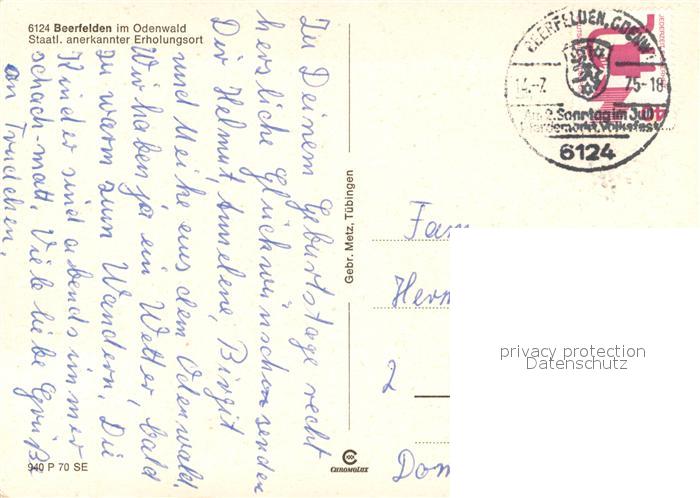 6124 Beerfelden im Odenwald
Staatl. anerkannter Erholungsort
Zu Deinem Geburtstage recht
herzliche Glückwünsche senden
Dir Helmut, Annelene, Birgit
und Meike aus dem Odenwald.
Wir haben ja ein Wetter, bald
zu warm zum Wandern. Die
Kinder sind abends immer
schach-matt. Viele liebe Grüße
an Trudchen.
940 P 70 SE
Gebr. Metz, Tübingen
CHROMOLUX
BEERFELDEN, ODENW
14.-7. 75-18
Am 2. Sonntag im Juli
Pferdemarkt, Volksfest
6124
Fam
Herm
2
Dom
privacy protection
Datenschutz